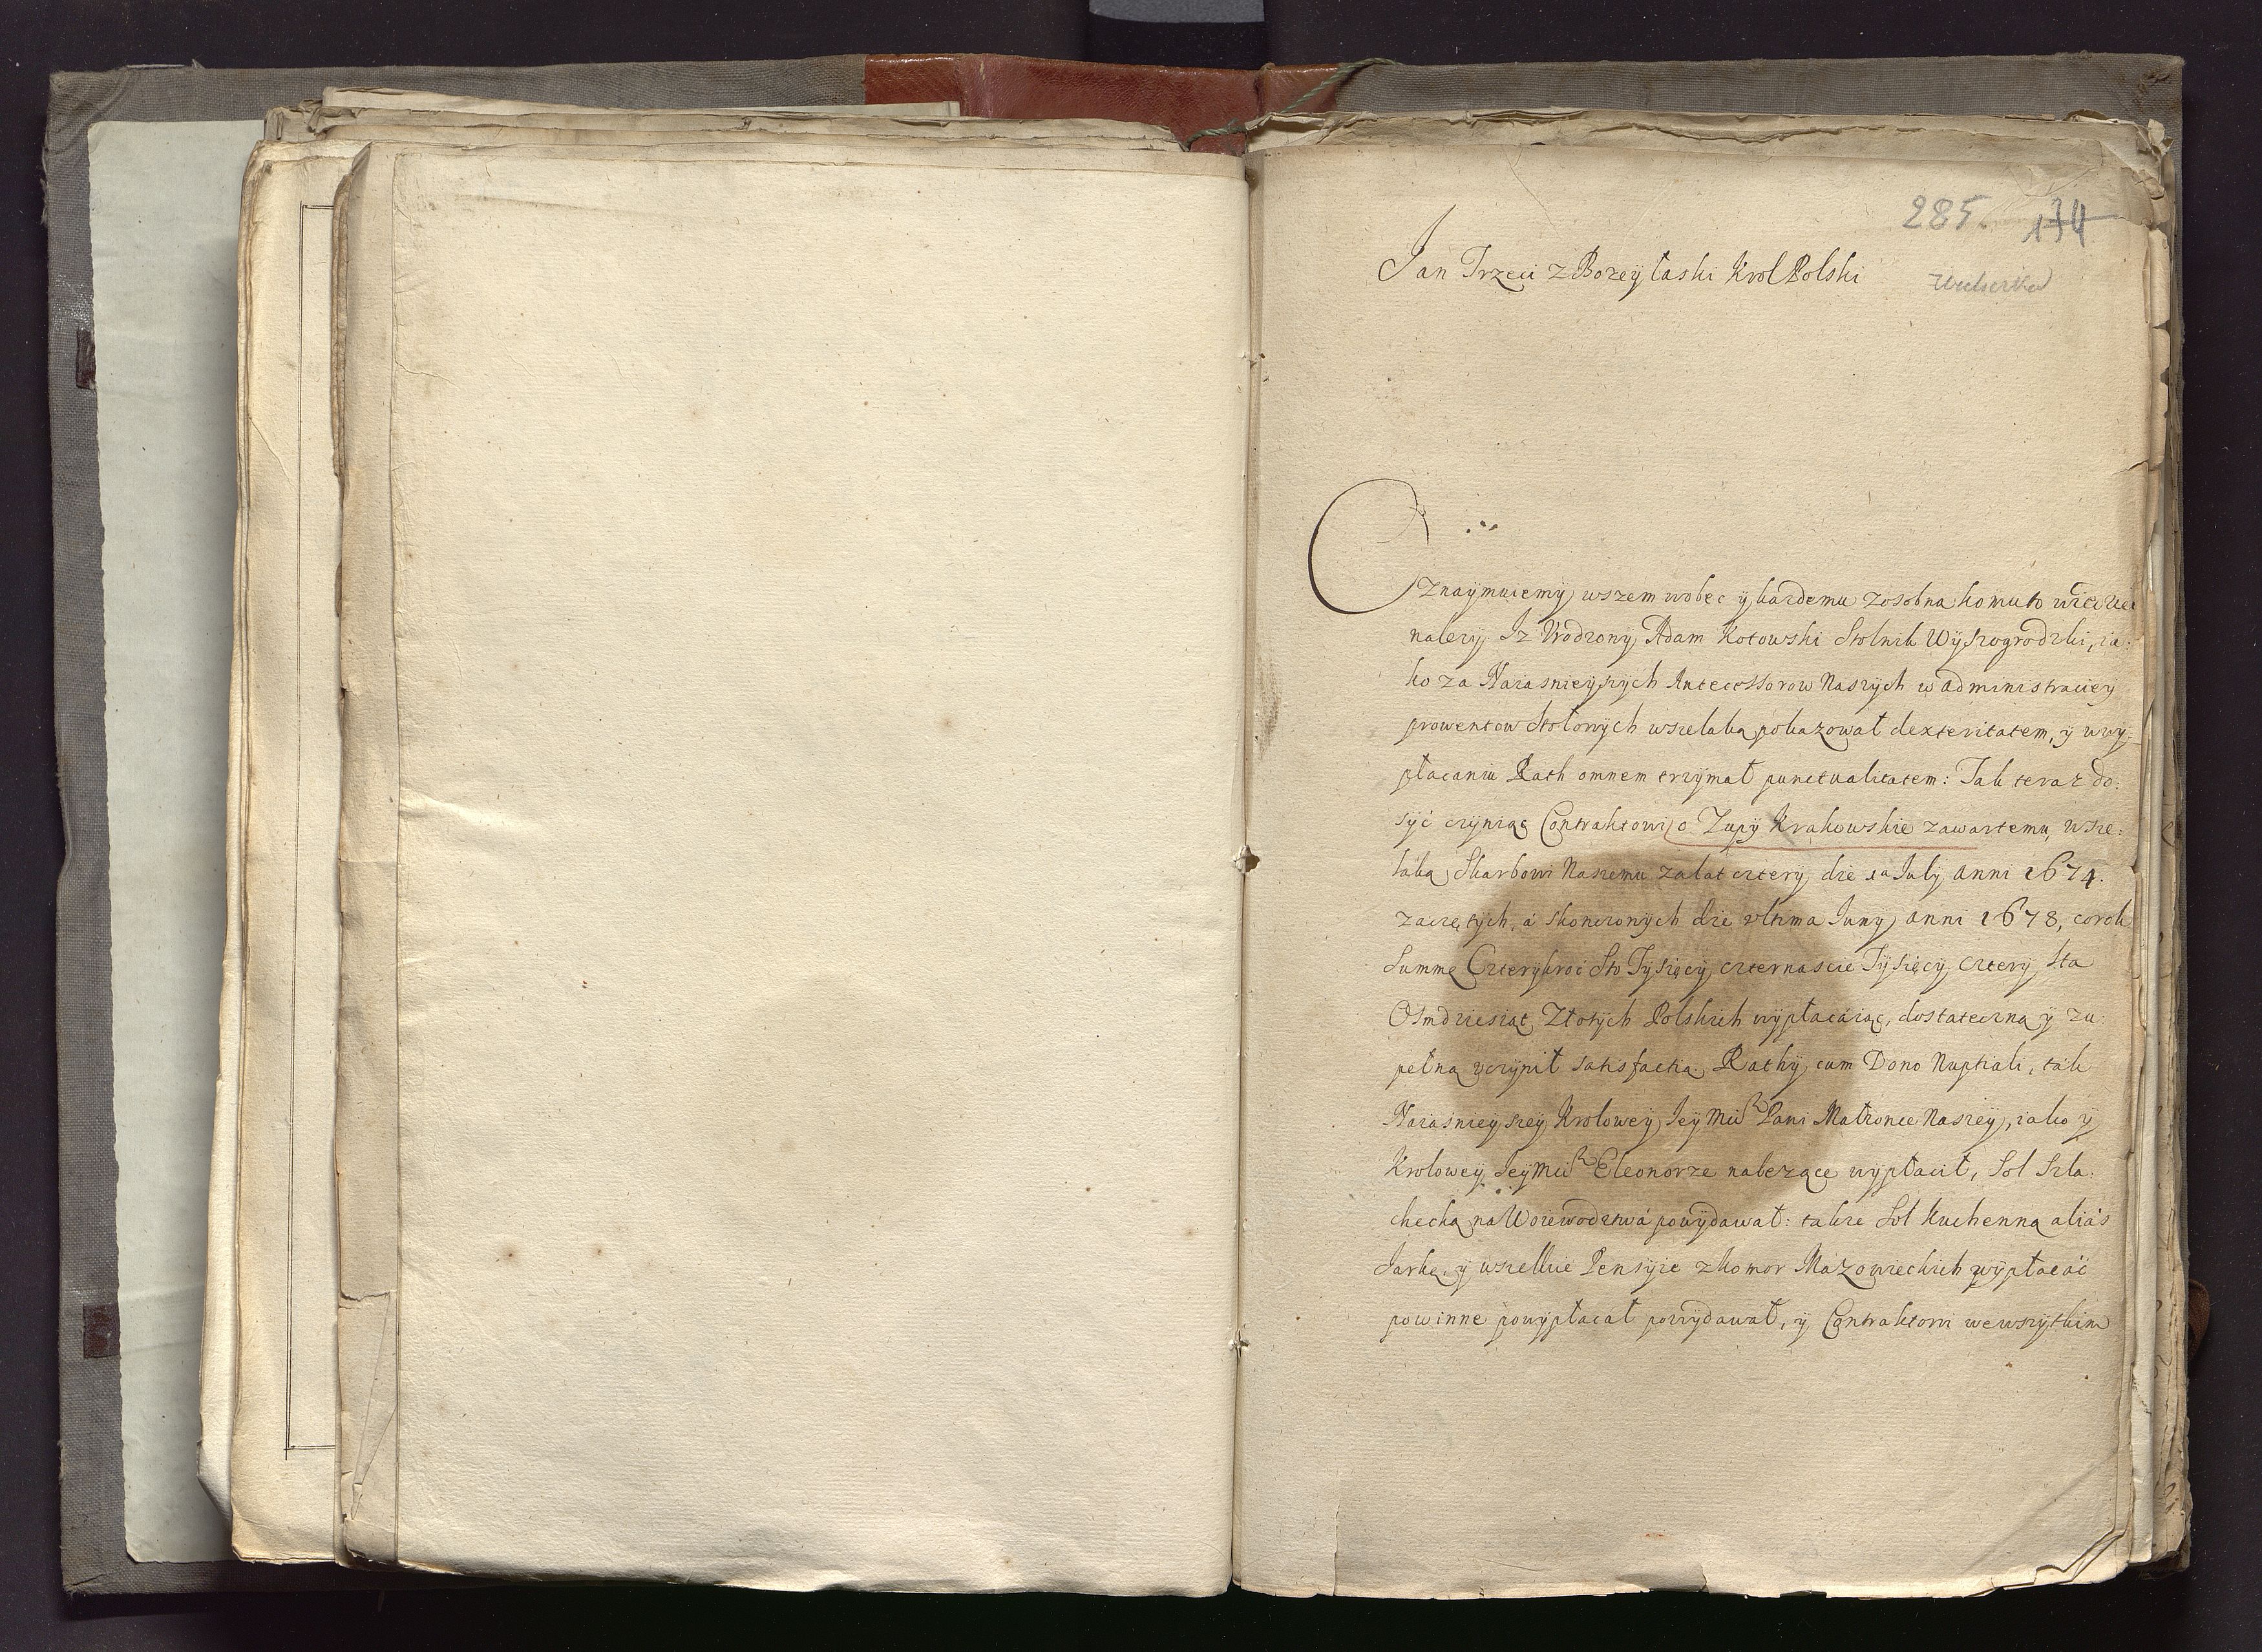 285. 174
Jan Trzeci z Bozey łaski Krol Polski
Oznaymuiemy wszem wobec y kazdemu zosobna komu to wiedziec
nalezy. Iz Vrodzony Adam Kotowski Stolnik Wyszogrodzki, ia:
ko za Naiasnieyszych Antecessorow Naszych w administraciey
prowentow Stołowych wszelaką pokazował dexteritatem, y wwy:
płacaniu Rath omnem trzymał punctualitatem: Tak teraz do:
syć czyniąc Contraktowi o Zupy Krakowskie zawartemu, wsze:
laką Skarbowi Naszemu za lat cztery die 1a July anni 1674.
zaczętych, á skonczonych die vltima Juny anni 1678, corok
Summę Czterykroć Sto Tysięcy czternascie Tysięcy cztery sta
Osmdziesiąt Złotych Polskich wypłacaiąc, dostateczną y zu:
pełną vczynił satisfactią. Rathy cum Dono Nuptiali, tak
Naiaśnieyszey Krolowey Jey Mci Pani Małzonce Naszey, iako y
Krolowey Jey Mci Eleonorze nalezące wypłacił, Sol Szla:
checką na Woiewodztwá powydawał: takze Sol Kuchenną aliás
Jarkę, y wszelkie Pensyie z Komor Mazowieckich wypłacáć
powinne powypłacał powydawał, y Contraktowi wewszytkim